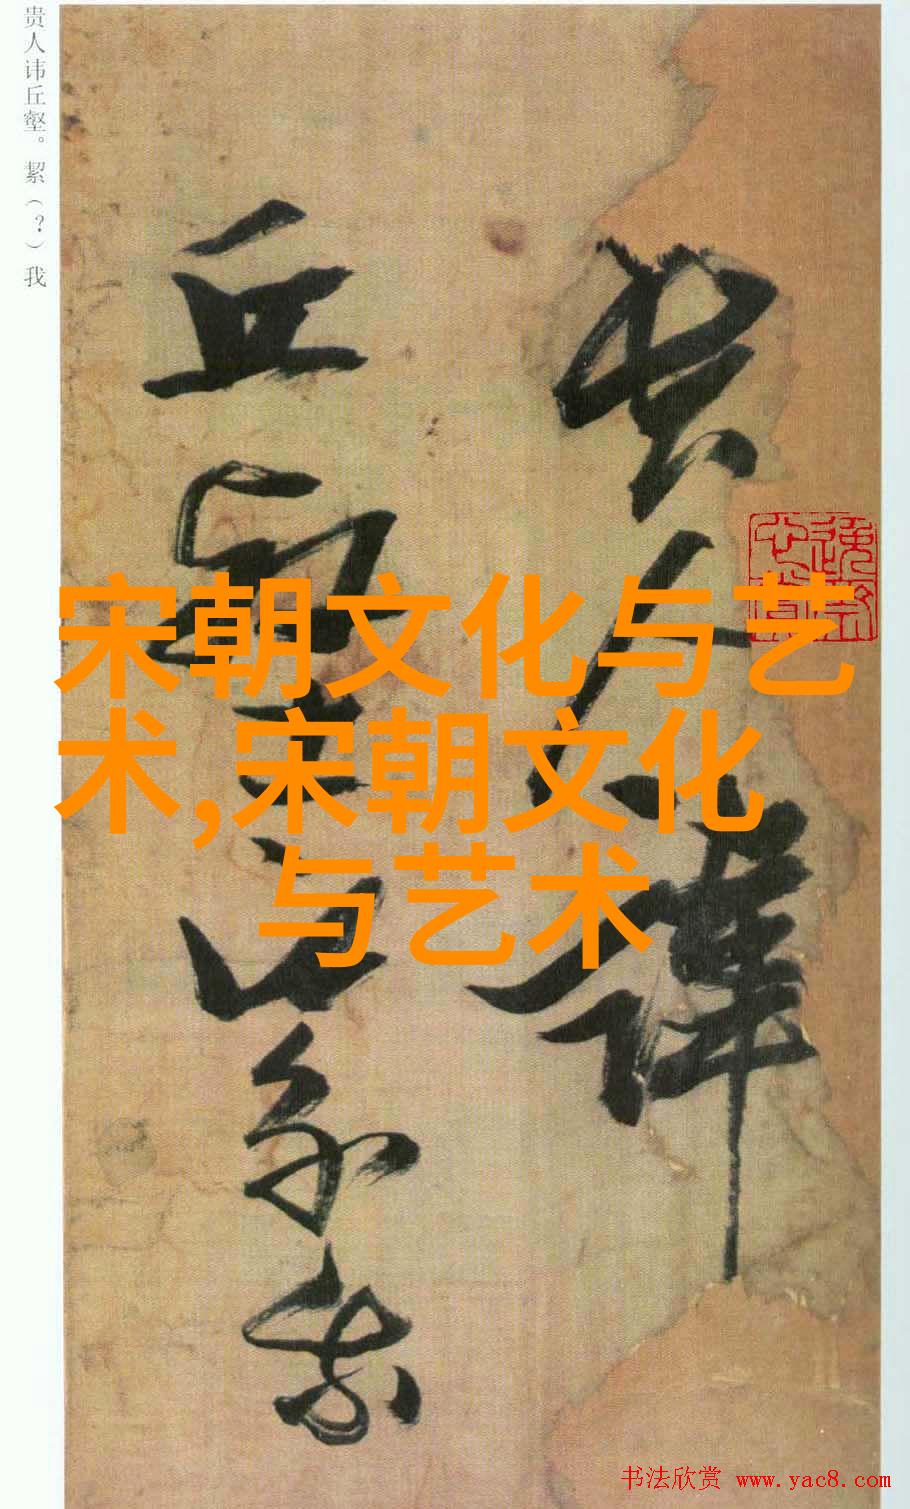 贵人讳丘壑。絜（？）我
贵人讳
丘壑
絜我
宋朝文化与艺
术,宋朝文化
与艺术
书法欣赏 www.yac8.com